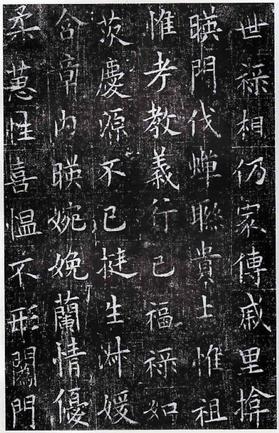 世祿相仍家傳戚里
暎門伐蟬聯貴士惟祖
惟考教義行已福祿如
茨慶源不已挺生淑媛
含章内暎婉娩蘭情優
柔蕙性喜愠不形門